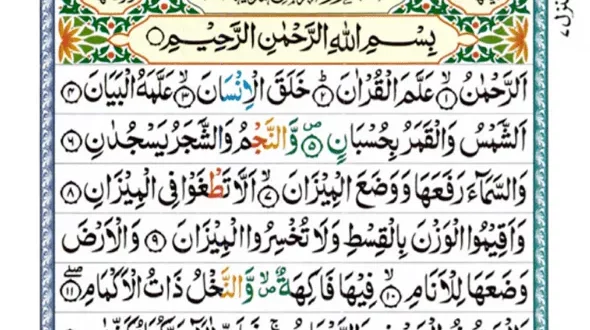 منزل ٧
بِسْمِ اللهِ الرَّحْمٰنِ الرَّحِيْمِ
اَلرَّحْمٰنُ ۙ﴿۱﴾ عَلَّمَ الْقُرْاٰنَ ؕ﴿۲﴾ خَلَقَ الْاِنْسَانَ ۙ﴿۳﴾ عَلَّمَهُ الْبَيَانَ ﴿۴﴾
اَلشَّمْسُ وَالْقَمَرُ بِحُسْبَانٍ ۪﴿۵﴾ وَّالنَّجْمُ وَالشَّجَرُ يَسْجُدٰنِ ﴿۶﴾
وَالسَّمَآءَ رَفَعَهَا وَوَضَعَ الْمِيْزَانَ ۙ﴿۷﴾ اَلَّا تَطْغَوْا فِى الْمِيْزَانِ ﴿۸﴾
وَاَقِيْمُوا الْوَزْنَ بِالْقِسْطِ وَلَا تُخْسِرُوا الْمِيْزَانَ ﴿۹﴾ وَالْاَرْضَ
وَضَعَهَا لِلْاَنَامِ ۙ﴿۱۰﴾ فِيْهَا فَاكِهَةٌ ۪ۙ وَّالنَّخْلُ ذَاتُ الْاَكْمَامِ ۖ﴿۱۱﴾